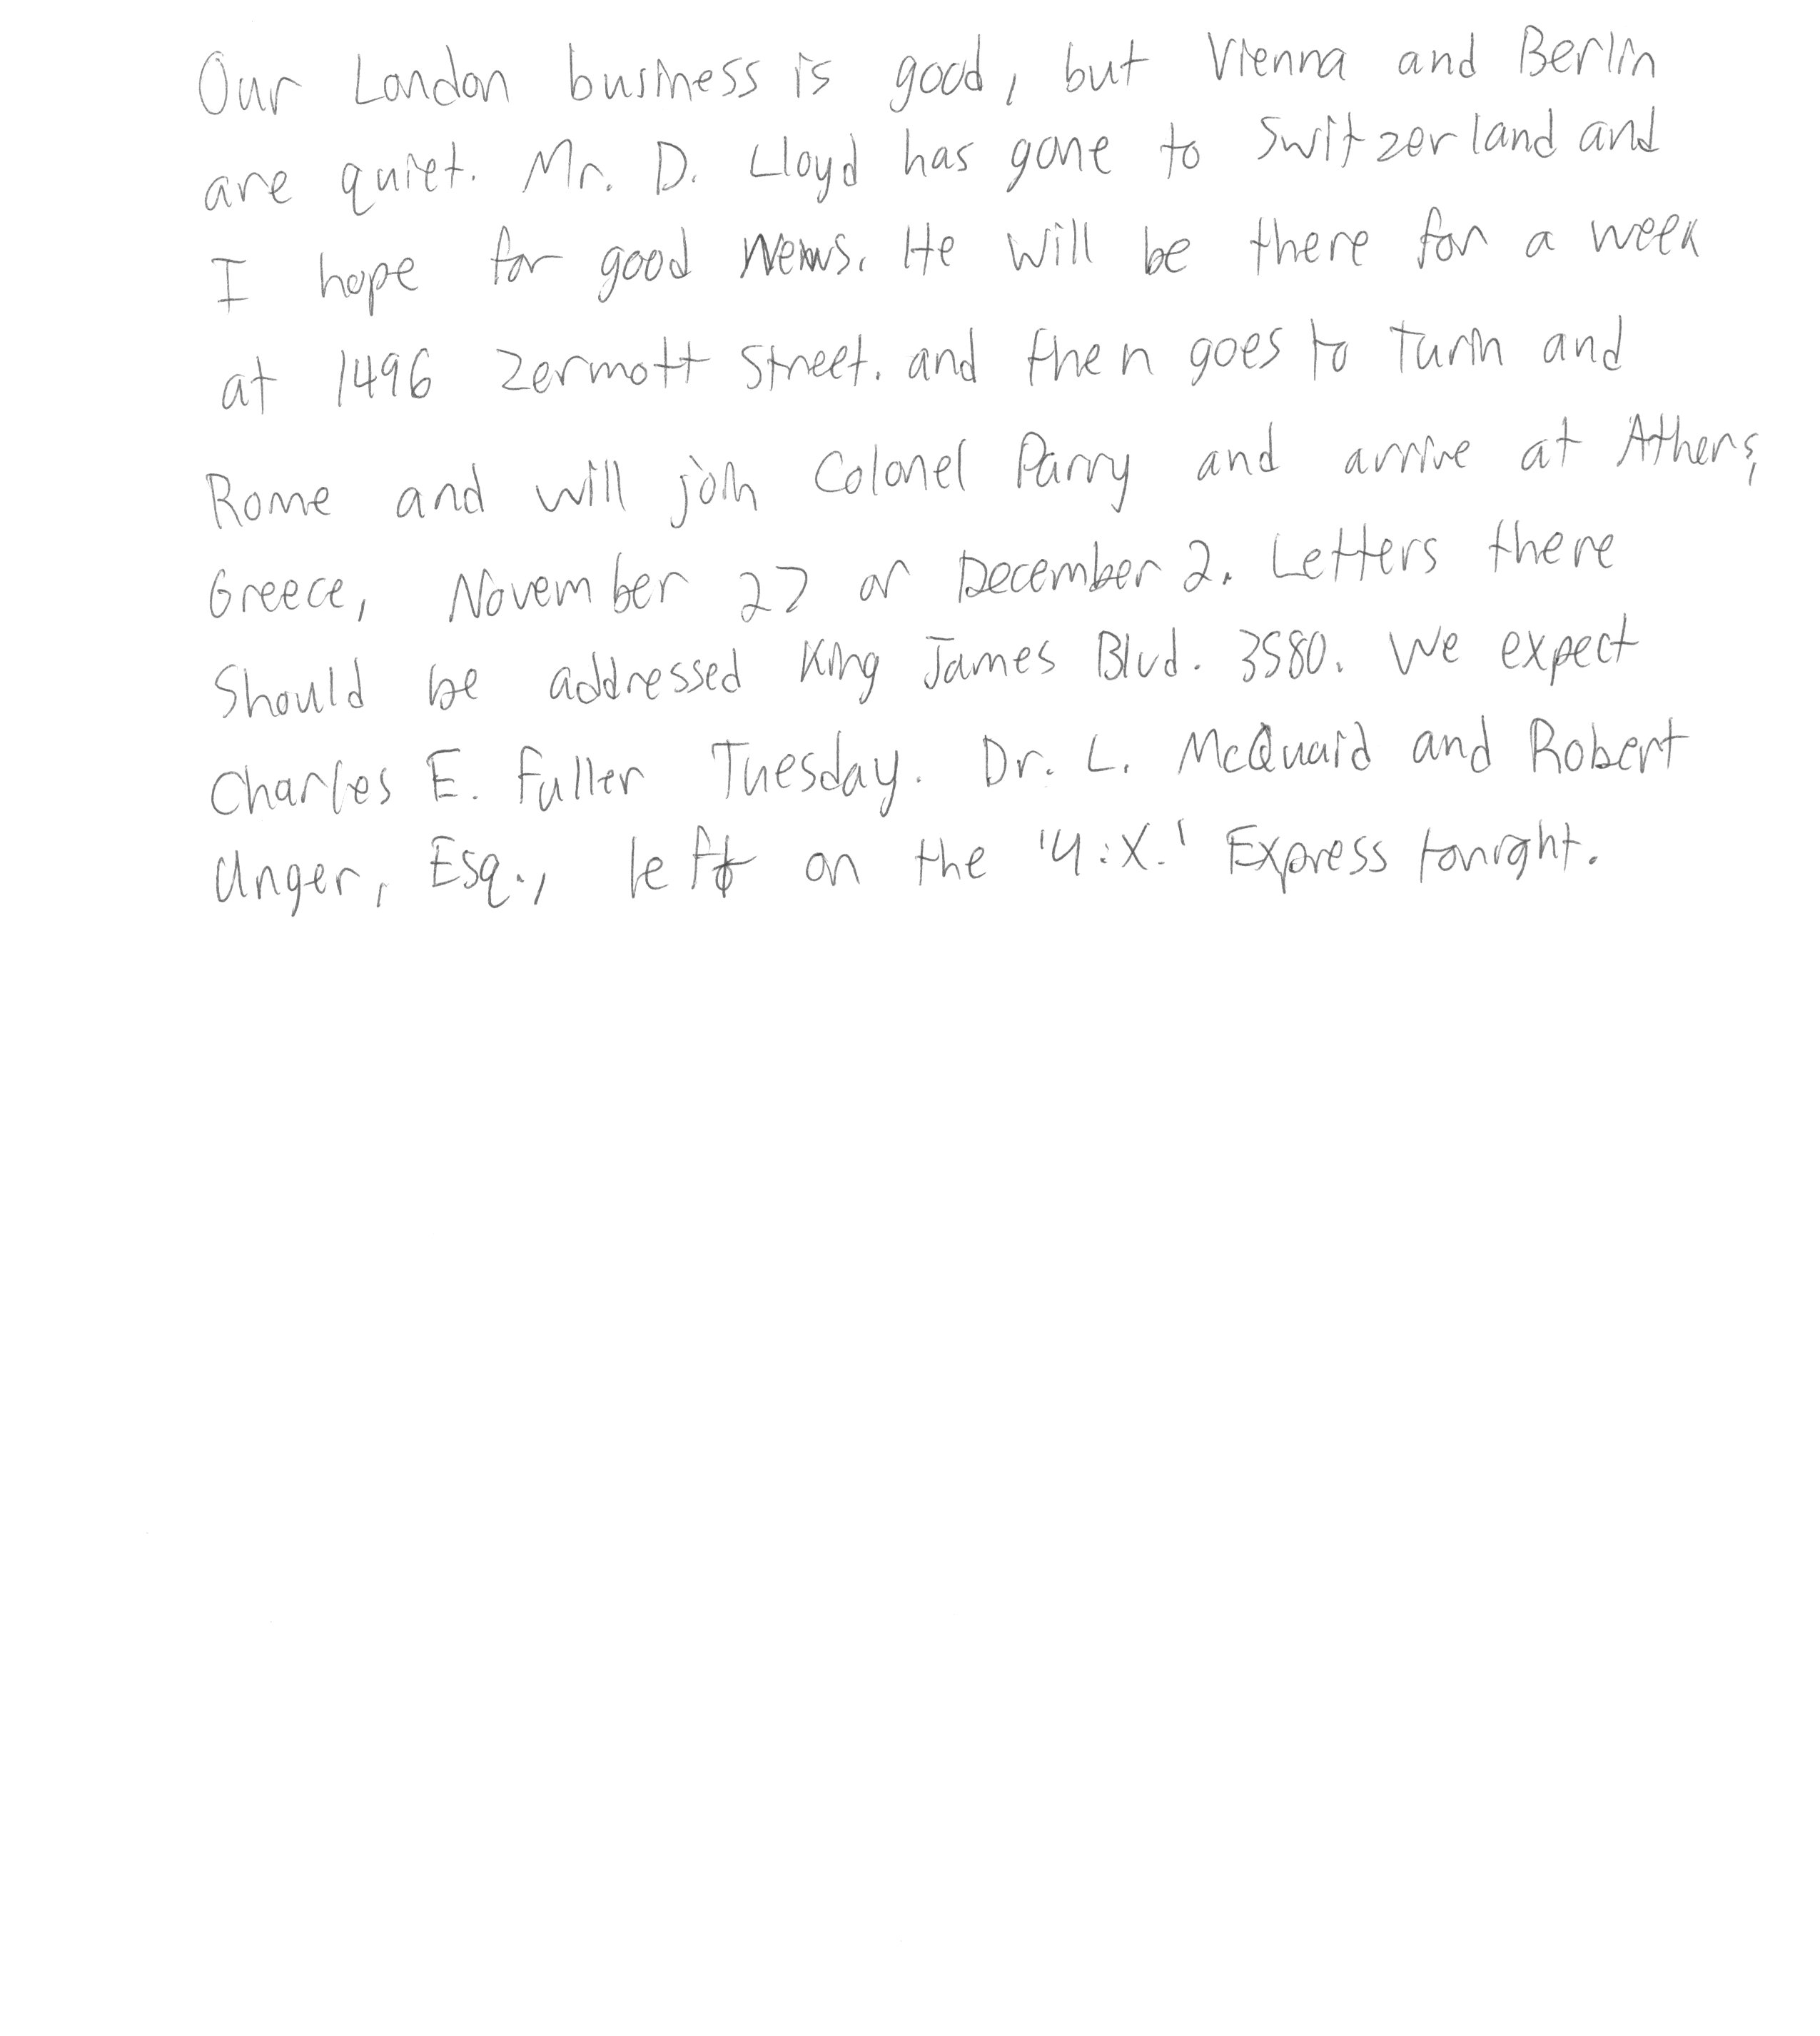 Our London business is good, but Vienna and Berlin
are quiet. Mr. D. Lloyd has gone to Switzerland and
I hope for good news. He will be there for a week
at 1496 Zermott Street. and then goes to Turin and
Rome and will join Colonel Parry and arrive at Athens,
Greece, November 27 or December 2. Letters there
Should be addressed King James Blvd. 3580. We expect
Charles E. Fuller Tuesday. Dr. L. McQuaid and Robert
Unger, Esq., left on the '4:X.' Express tonight.